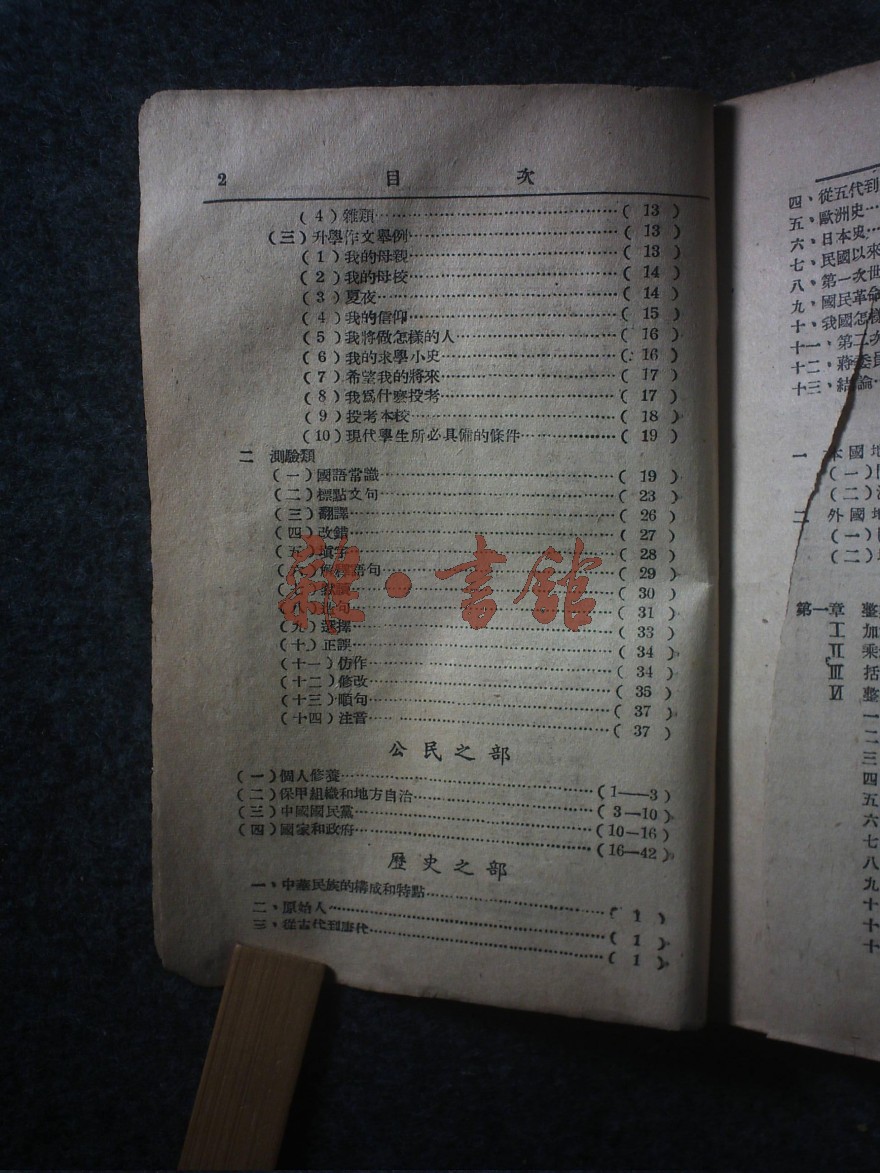 2 目 次
(4)雜類……(13)
(三)升學作文舉例……(13)
(1)我的母親……(13)
(2)我的母校……(14)
(3)夏夜……(14)
(4)我的信仰……(15)
(5)我將做怎樣的人……(16)
(6)我的求學小史……(16)
(7)希望我的將來……(17)
(8)我爲什麽投考……(17)
(9)投考本校……(18)
(10)現代學生所必具備的條件……(19)
二 測驗類
(一)國語常識……(19)
(二)標點文句……(23)
(三)翻譯……(26)
(四)改錯……(27)
(五)填字……(28)
(六)解釋語句……(29)
(七)……(30)
(八)造句……(31)
(九)選擇……(33)
(十)正誤……(34)
(十一)仿作……(34)
(十二)修改……(35)
(十三)順句……(37)
(十四)注音……(37)
公民之部
(一)個人修養……(1——3)
(二)保甲組織和地方自治……(3—10)
(三)中國國民黨……(10—16)
(四)國家和政府……(16—42)
歷史之部
一、中華民族的構成和特點……(1)
二、原始人……(1)
三、從古代到唐代……(1)
雜·書館
四、從五代到
五、歐洲史…
六、日本史…
七、民國以來
八、第一次世
九、國民革命
十、我國怎樣
十一、第二次
十二、蔣委員
十三、結論…
一 本國地
(一)
(二)
二 外國地
(一)
(二)
第一章 整
I 加
II 乘
III 括
IV 整
一
二
三
四
五
六
七
八
九
十
十
十